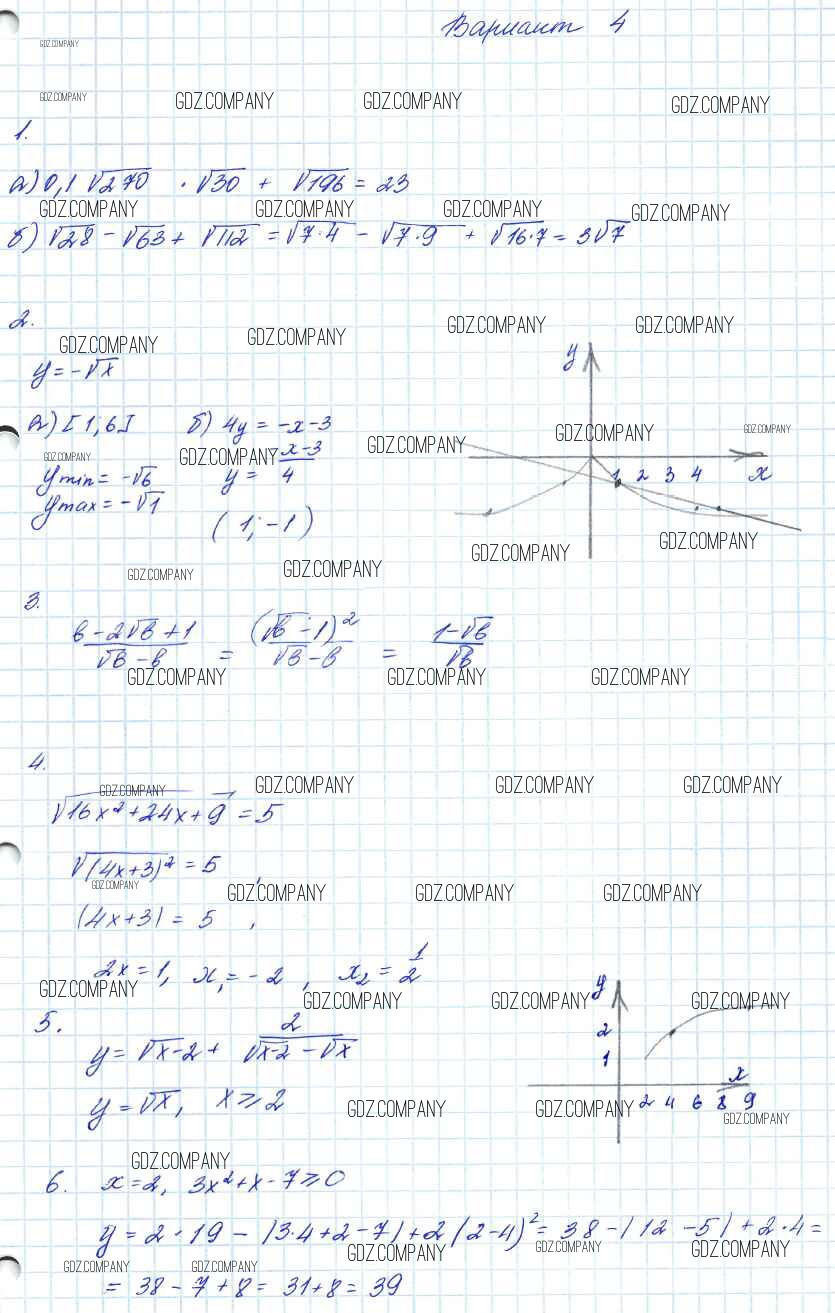 Вариант 4
GDZ.COMPANY
GDZ.COMPANY GDZ.COMPANY GDZ.COMPANY GDZ.COMPANY
1.
а) 0,1 √270 · √30 + √196 = 23
GDZ.COMPANY GDZ.COMPANY GDZ.COMPANY GDZ.COMPANY
б) √28 - √63 + √112 = √7·4 - √7·9 + √16·7 = 3√7
2.
GDZ.COMPANY GDZ.COMPANY GDZ.COMPANY GDZ.COMPANY
y = -√x
y
а) [1; 6] б) 4y = -x-3
GDZ.COMPANY GDZ.COMPANY GDZ.COMPANY GDZ.COMPANY GDZ.COMPANY
y min = -√6 y = x-3/4
1 2 3 4 x
y max = -√1
(1; -1)
GDZ.COMPANY GDZ.COMPANY
GDZ.COMPANY GDZ.COMPANY
3.
в - 2√в + 1 / √в - в = (√в - 1)² / √в - в = 1-√в / √в
GDZ.COMPANY GDZ.COMPANY GDZ.COMPANY
4.
GDZ.COMPANY GDZ.COMPANY GDZ.COMPANY GDZ.COMPANY
√16x²+24x+9 = 5
√(4x+3)² = 5,
GDZ.COMPANY GDZ.COMPANY GDZ.COMPANY GDZ.COMPANY
(4x+3) = 5,
2x = 1, x₁ = -2, x₂ = 1/2
GDZ.COMPANY GDZ.COMPANY GDZ.COMPANY GDZ.COMPANY
y
5.
y = √x-2 + 2/√x-2 - √x
2
1
x
y = √x, x ⩾ 2
2 4 6 8 9
GDZ.COMPANY GDZ.COMPANY GDZ.COMPANY
GDZ.COMPANY
6. x = 2, 3x²+x-7 ⩾ 0
y = 2·19 - |3·4+2-7| + 2(2-4)² = 38 - |12-5| + 2·4 =
GDZ.COMPANY GDZ.COMPANY GDZ.COMPANY GDZ.COMPANY GDZ.COMPANY
= 38 - 7 + 8 = 31+8 = 39